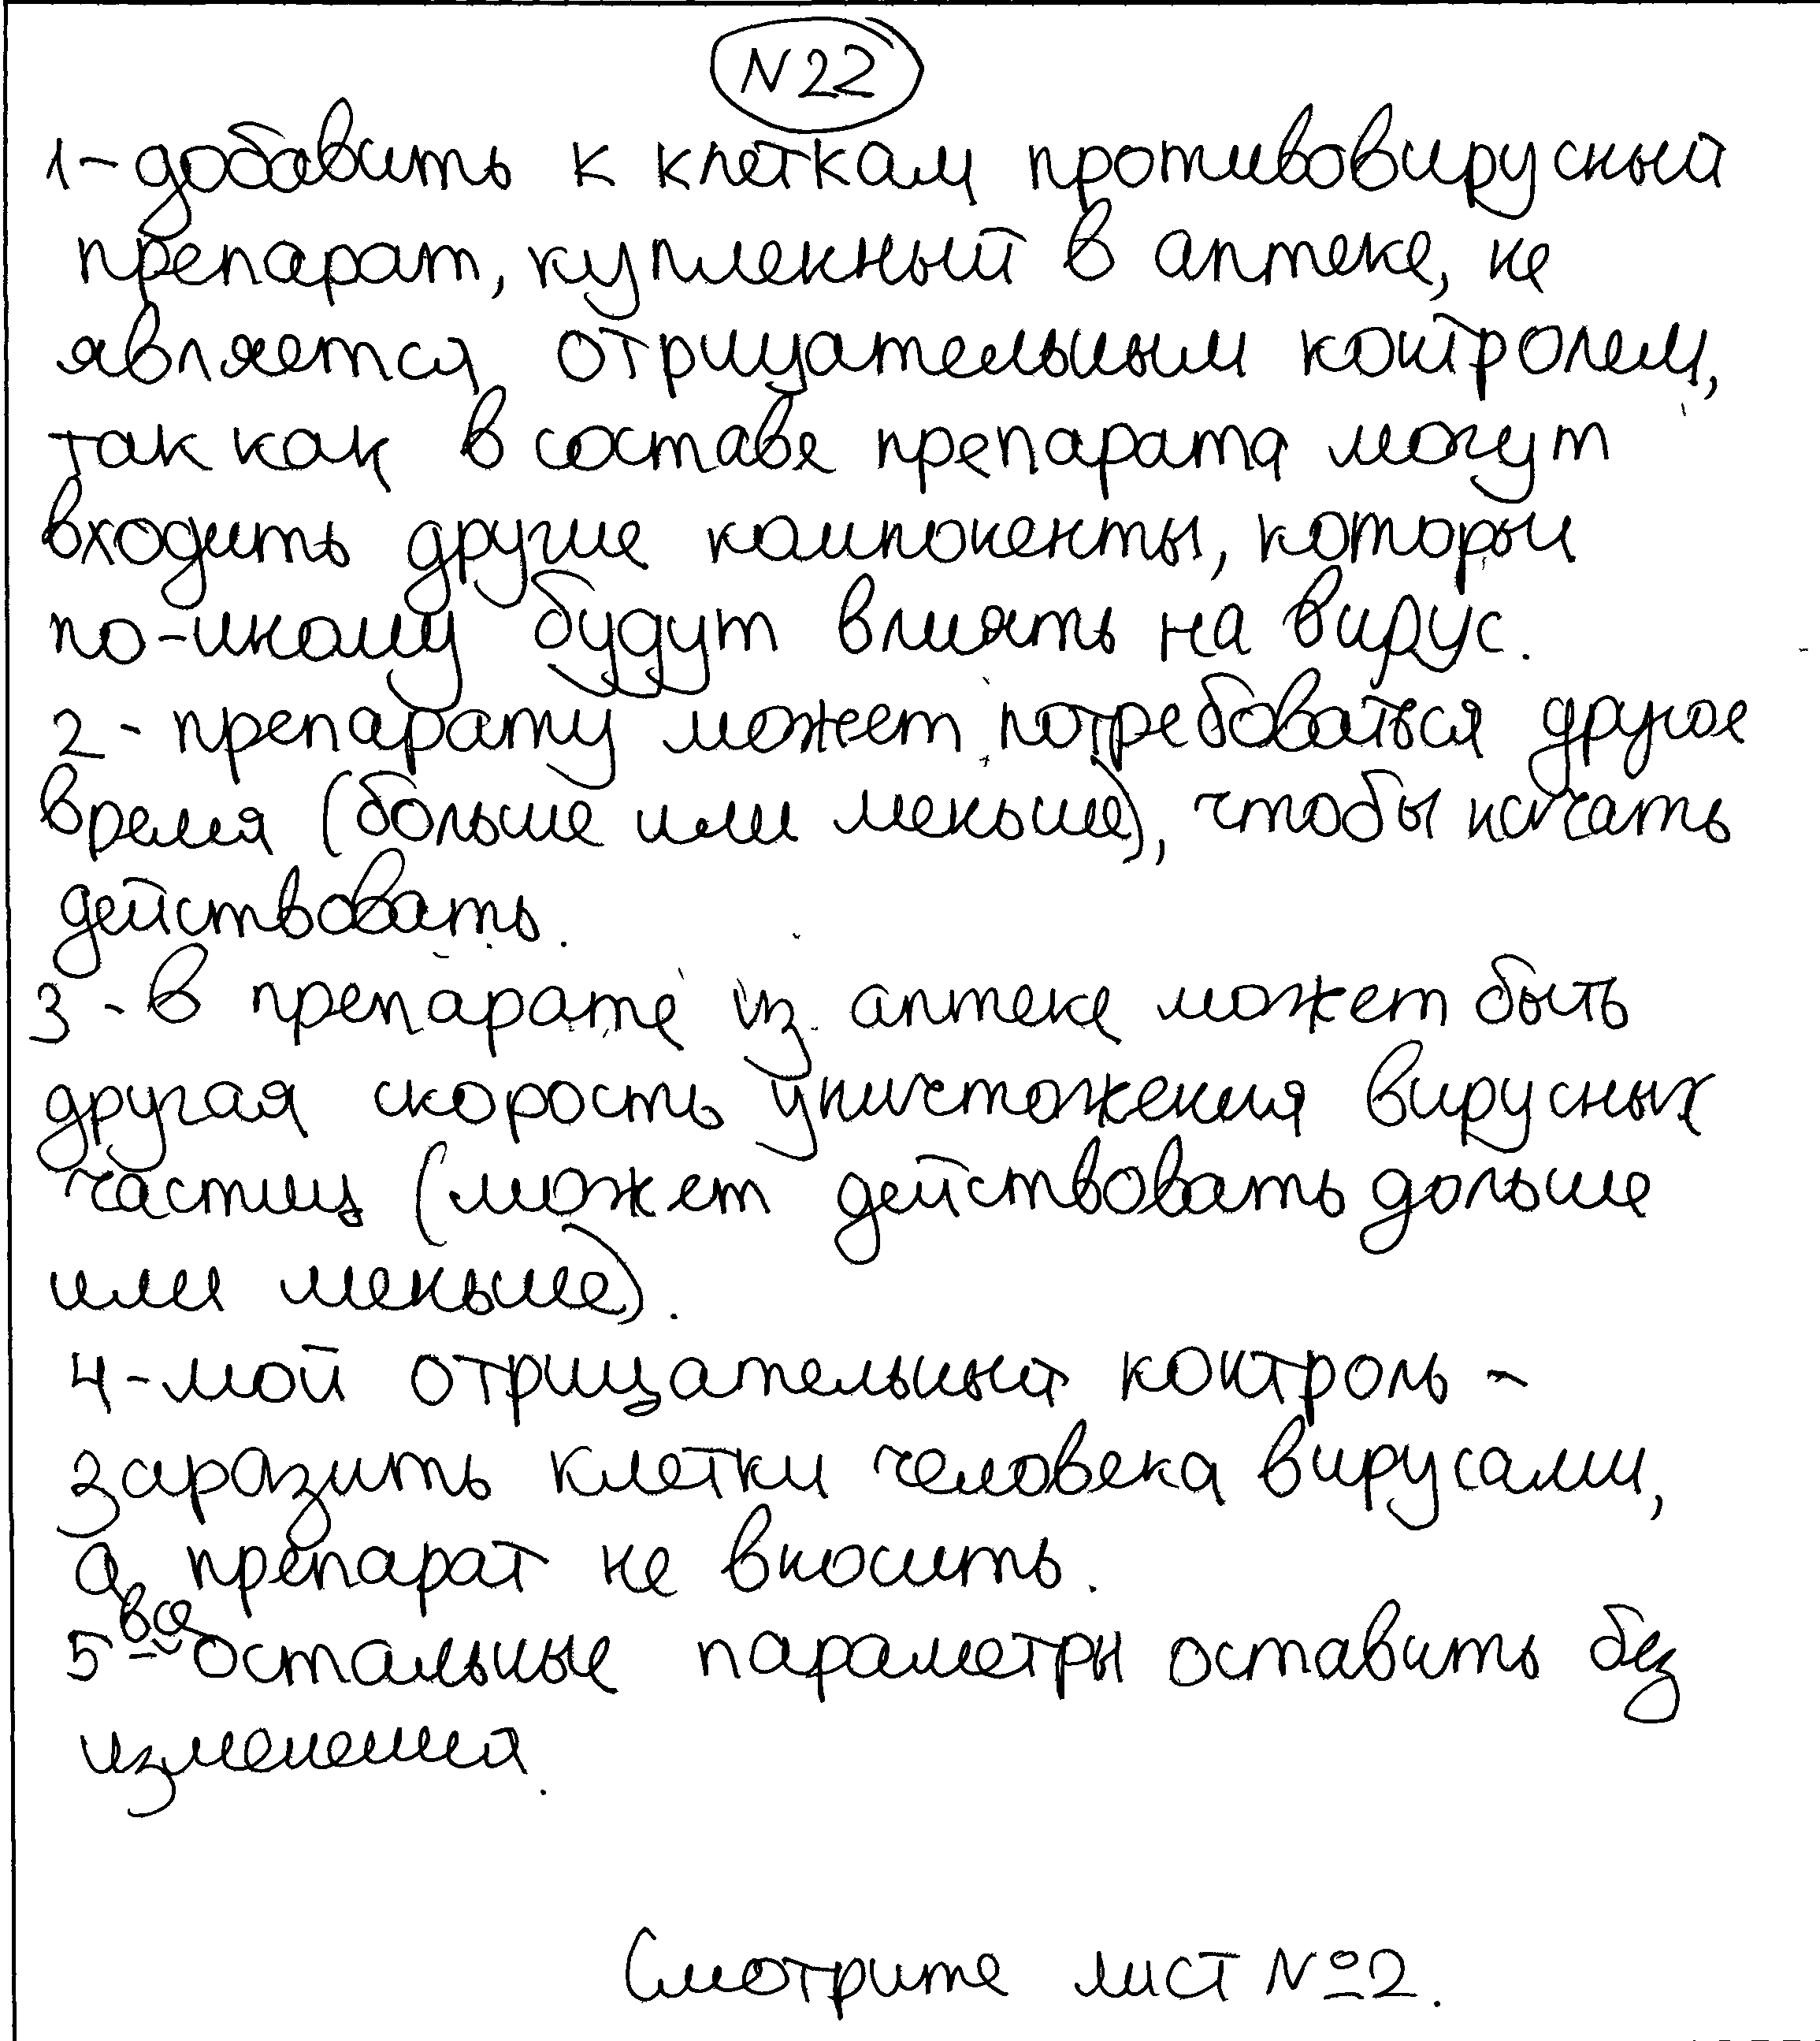 N22
1-добавить к клеткам противовирусный
препарат, купленный в аптеке, не
является отрицательным контролем,
так как в составе препарата могут
входить другие компоненты, которые
по-иному будут влиять на вирус.
2 - препарату может потребоваться другое
время (больше или меньше), чтобы начать
действовать.
3 - в препарате из аптеке может быть
другая скорость уничтожения вирусных
частиц (может действовать дольше
или меньше).
4-мой отрицательный контроль -
заразить клетки человека вирусами,
а препарат не вносить.
5 - все остальные параметры оставить без
изменения.
Смотрите лист №2.